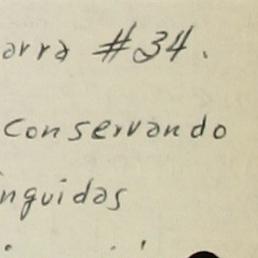 arra #34.
conservando
nguidas